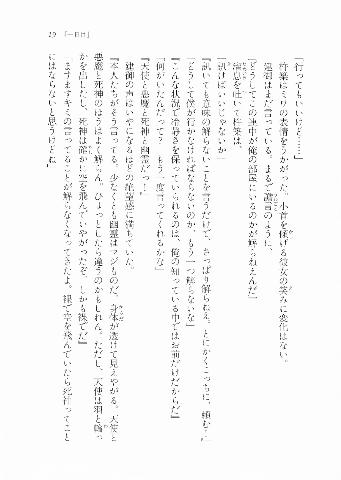 19 「一日目」
「行ってもいいけど……」
杵築はミワの表情をうかがった。小首を傾げる彼女の笑みに変化はない。
建御はまだ言っている。まるで譫言のように。
「どうしてこの連中が俺の部屋にいるのかが解らねえんだ」
溜息を吐いて杵築は、
「訊けばいいじゃないか」
「訊いても意味の解らないことを言うだけで、さっぱり解らねえ。とにかくこっちに、頼む…」
「どうして僕が行かなければならないのか、もう一つ解らないな」
「こんな状況で冷静さを保っていられるのは、俺の知っている中ではお前だけだからだ」
「何がいたんだって？ もう一度言ってくれるかな」
「天使と悪魔と死神と幽霊だっ！」
建御の声はいやになるほどの絶望感に満ちていた。
「本人たちがそう言ってる。少なくとも幽霊はマジものだ、身体が透けて見えやがる。天使と
悪魔と死神のほうはよく解らん。ひょっとしたら違うのかもしれん。ただし、天使は羽と輪っ
かを出したし、死神は確かに空を飛んでいやがったぞ。しかも裸でだ」
「ますますキミの言ってることが解らなくなってきたよ。裸で空を飛んでいたら死神ってこと
にはならないと思うけどね」